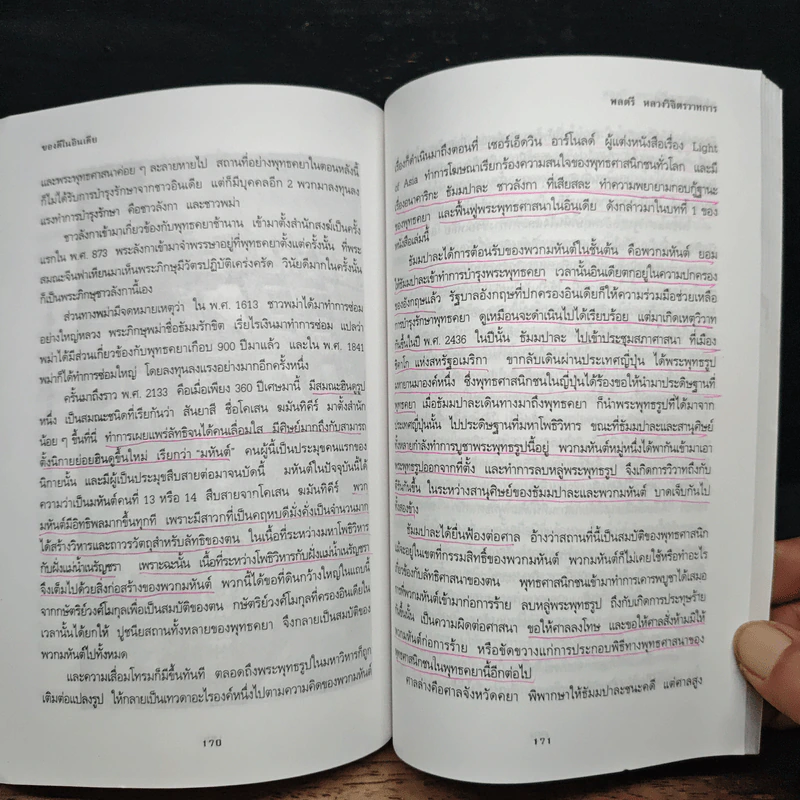 ของดีในอินเดีย
และพระพุทธศาสนาค่อย ๆ ละลายหายไป สถานที่อย่างพุทธคยาในตอนหลังนี้
ก็ไม่ได้รับการบำรุงรักษาจากชาวอินเดีย แต่ก็มีบุคคลอีก 2 พวกมาลงทุนลง
แรงทำการบำรุงรักษา คือชาวลังกา และชาวพม่า
ชาวลังกาเข้ามาเกี่ยวข้องกับพุทธคยาช้านาน เข้ามาตั้งสำนักสงฆ์เป็นครั้ง
แรกใน พ.ศ. 873 พระลังกาเข้ามาจำพรรษาอยู่ที่พุทธคยาตั้งแต่ครั้งนั้น ที่พระ
สมณะจีนฟาเหียนมาเห็นพระภิกษุมีวัตรปฏิบัติเคร่งครัด วินัยดีมากในครั้งนั้น
ก็เป็นพระภิกษุชาวลังกานี้เอง
ส่วนทางพม่ามีจดหมายเหตุว่า ใน พ.ศ. 1613 ชาวพม่าได้มาทำการซ่อม
อย่างใหญ่หลวง พระภิกษุพม่าชื่อธัมมรักขิต เรี่ยไรเงินมาทำการซ่อม แปลว่า
พม่าได้มีส่วนเกี่ยวข้องกับพุทธคยาเกือบ 900 ปีมาแล้ว และใน พ.ศ. 1841
พม่าก็ได้ทำการซ่อมใหญ่ โดยลงทุนลงแรงอย่างมากอีกครั้งหนึ่ง
ครั้นมาถึงราว พ.ศ. 2133 คือเมื่อเพียง 360 ปีเศษมานี้ มีสมณะฮินดูรูป
หนึ่ง เป็นสมณะชนิดที่เรียกกันว่า สันยาสี ชื่อโคเสน ฆมันทิคีร์ มาตั้งสำนัก
น้อย ๆ ขึ้นที่นี่ ทำการเผยแพร่ลัทธิจนได้คนเลื่อมใส มีศิษย์มากถึงกับสามารถ
ตั้งนิกายย่อยฮินดูขึ้นใหม่ เรียกว่า "มหันต์" คนผู้นี้เป็นประมุขคนแรกของ
นิกายนั้น และมีผู้เป็นประมุขสืบสายต่อมาจนบัดนี้ มหันต์ในปัจจุบันนี้ได้
ความว่าเป็นมหันต์คนที่ 13 หรือ 14 สืบสายจากโคเสน ฆมันทิคีร์ พวก
มหันต์มีอิทธิพลมากขึ้นทุกที เพราะมีสาวกที่เป็นคฤหบดีมั่งคั่งเป็นจำนวนมาก
ได้สร้างวิหารและถาวรวัตถุสำหรับลัทธิของตน ในเนื้อที่ระหว่างมหาโพธิวิหาร
กับฝั่งแม่น้ำเนรัญชรา เพราะฉะนั้น เนื้อที่ระหว่างโพธิวิหารกับฝั่งแม่น้ำเนรัญชรา
จึงเต็มไปด้วยสิ่งก่อสร้างของพวกมหันต์ พวกนี้ได้ขอที่ดินกว้างใหญ่ในแถบนี้
จากกษัตริย์วงศ์โมกุลเพื่อเป็นสมบัติของตน กษัตริย์วงศ์โมกุลที่ครองอินเดียใน
เวลานั้นได้ยกให้ ปูชนียสถานทั้งหลายของพุทธคยา จึงกลายเป็นสมบัติของ
พวกมหันต์ไปทั้งหมด
และความเสื่อมโทรมก็มีขึ้นทันที ตลอดถึงพระพุทธรูปในมหาวิหารก็ถูก
เติมต่อแปลงรูป ให้กลายเป็นเทวดาอะไรองค์หนึ่งไปตามความคิดของพวกมหันต์
170
พลตรี หลวงวิจิตรวาทการ
เรื่องก็ดำเนินมาถึงตอนที่ เซอร์เอ็ดวิน อาร์โนลด์ ผู้แต่งหนังสือเรื่อง Light
of Asia ทำการโฆษณาเรียกร้องความสนใจของพุทธศาสนิกชนทั่วโลก และมี
เรื่องอนาคาริกะ ธัมมปาละ ชาวลังกา ที่เสียสละ ทำความพยายามกอบกู้ฐานะ
ของพุทธคยา และฟื้นฟูพระพุทธศาสนาในอินเดีย ดังกล่าวมาในบทที่ 1 ของ
หนังสือเล่มนี้
ธัมมปาละได้การต้อนรับของพวกมหันต์ในชั้นต้น คือพวกมหันต์ ยอม
ให้ธัมมปาละเข้าทำการบำรุงพระพุทธคยา เวลานั้นอินเดียตกอยู่ในความปกครอง
ของอังกฤษแล้ว รัฐบาลอังกฤษที่ปกครองอินเดียก็ให้ความร่วมมือช่วยเหลือ
การบำรุงรักษาพุทธคยา ดูเหมือนจะดำเนินไปได้เรียบร้อย แต่มาเกิดเหตุวิวาท
กันขึ้นในปี พ.ศ. 2436 ในปีนั้น ธัมมปาละ ไปเข้าประชุมสภาศาสนา ที่เมือง
ชิคาโก แห่งสหรัฐอเมริกา ขากลับเดินผ่านประเทศญี่ปุ่น ได้พระพุทธรูป
มหายานมาองค์หนึ่ง ซึ่งพุทธศาสนิกชนในญี่ปุ่นได้ร้องขอให้นำมาประดิษฐานที่
พุทธคยา เมื่อธัมมปาละเดินทางมาถึงพุทธคยา ก็นำพระพุทธรูปที่ได้มาจาก
ประเทศญี่ปุ่นนั้น ไปประดิษฐานที่มหาโพธิวิหาร ขณะที่ธัมมปาละและสานุศิษย์
ทั้งหลายกำลังทำการบูชาพระพุทธรูปนี้อยู่ พวกมหันต์หมู่หนึ่งได้พากันเข้ามาเอา
พระพุทธรูปออกจากที่ตั้ง และทำการลบหลู่พระพุทธรูป จึงเกิดการวิวาทถึงกับ
ตีกันขึ้น ในระหว่างสานุศิษย์ของธัมมปาละและพวกมหันต์ บาดเจ็บกันไป
ทั้งสองข้าง
ธัมมปาละได้ยื่นฟ้องต่อศาล อ้างว่าสถานที่นี้เป็นสมบัติของพุทธศาสนิก
แม้จะอยู่ในเขตที่กรรมสิทธิ์ของพวกมหันต์ พวกมหันต์ก็ไม่เคยใช้หรือทำอะไร
เกี่ยวข้องกับลัทธิศาสนาของตน พุทธศาสนิกชนเข้ามาทำการเคารพบูชาได้เสมอ
การที่พวกมหันต์เข้ามาก่อการร้าย ลบหลู่พระพุทธรูป ถึงกับเกิดการประทุษร้าย
กันขึ้นนั้น เป็นความผิดต่อศาสนา ขอให้ศาลลงโทษ และขอให้ศาลสั่งห้ามมิให้
พวกมหันต์ก่อการร้าย หรือขัดขวางแก่การประกอบพิธีทางพุทธศาสนาของ
พุทธศาสนิกชนในพุทธคยานี้อีกต่อไป
ศาลล่างคือศาลจังหวัดคยา พิพากษาให้ธัมมปาละชนะคดี แต่ศาลสูง
171